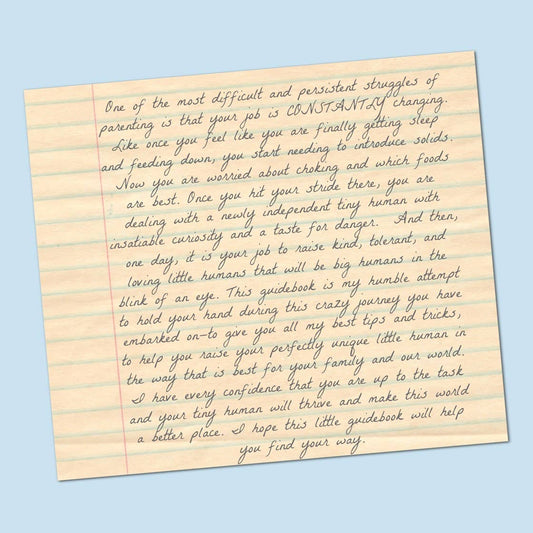 One of the most difficult and persistent struggles of
parenting is that your job is CONSTANTLY changing.
Like once you feel like you are finally getting sleep
and feeding down, you start needing to introduce solids.
Now you are worried about choking and which foods
are best. Once you hit your stride there, you are
dealing with a newly independent tiny human with
insatiable curiosity and a taste for danger. And then,
one day, it is your job to raise kind, tolerant, and
loving little humans that will be big humans in the
blink of an eye. This guidebook is my humble attempt
to hold your hand during this crazy journey you have
embarked on-to give you all my best tips and tricks,
to help you raise your perfectly unique little human in
the way that is best for your family and our world.
I have every confidence that you are up to the task
and your tiny human will thrive and make this world
a better place. I hope this little guidebook will help
you find your way.